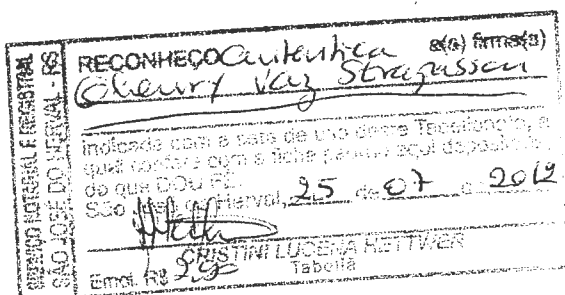 SERVIÇO NOTARIAL E REGISTRAL
SÃO JOSÉ DO HERVAL - RS
RECONHEÇO autentica a(s) firma(s)
Vaz Strapasson
indicada com a seta de uso deste Tabelionato, a
qual confere com a ficha padrão aqui depositada
do que DOU FÉ.
São José do Herval, 25 de 07 d 2012
CRISTINI LUCENA HETTWER
Tabeliã
Emol. R$